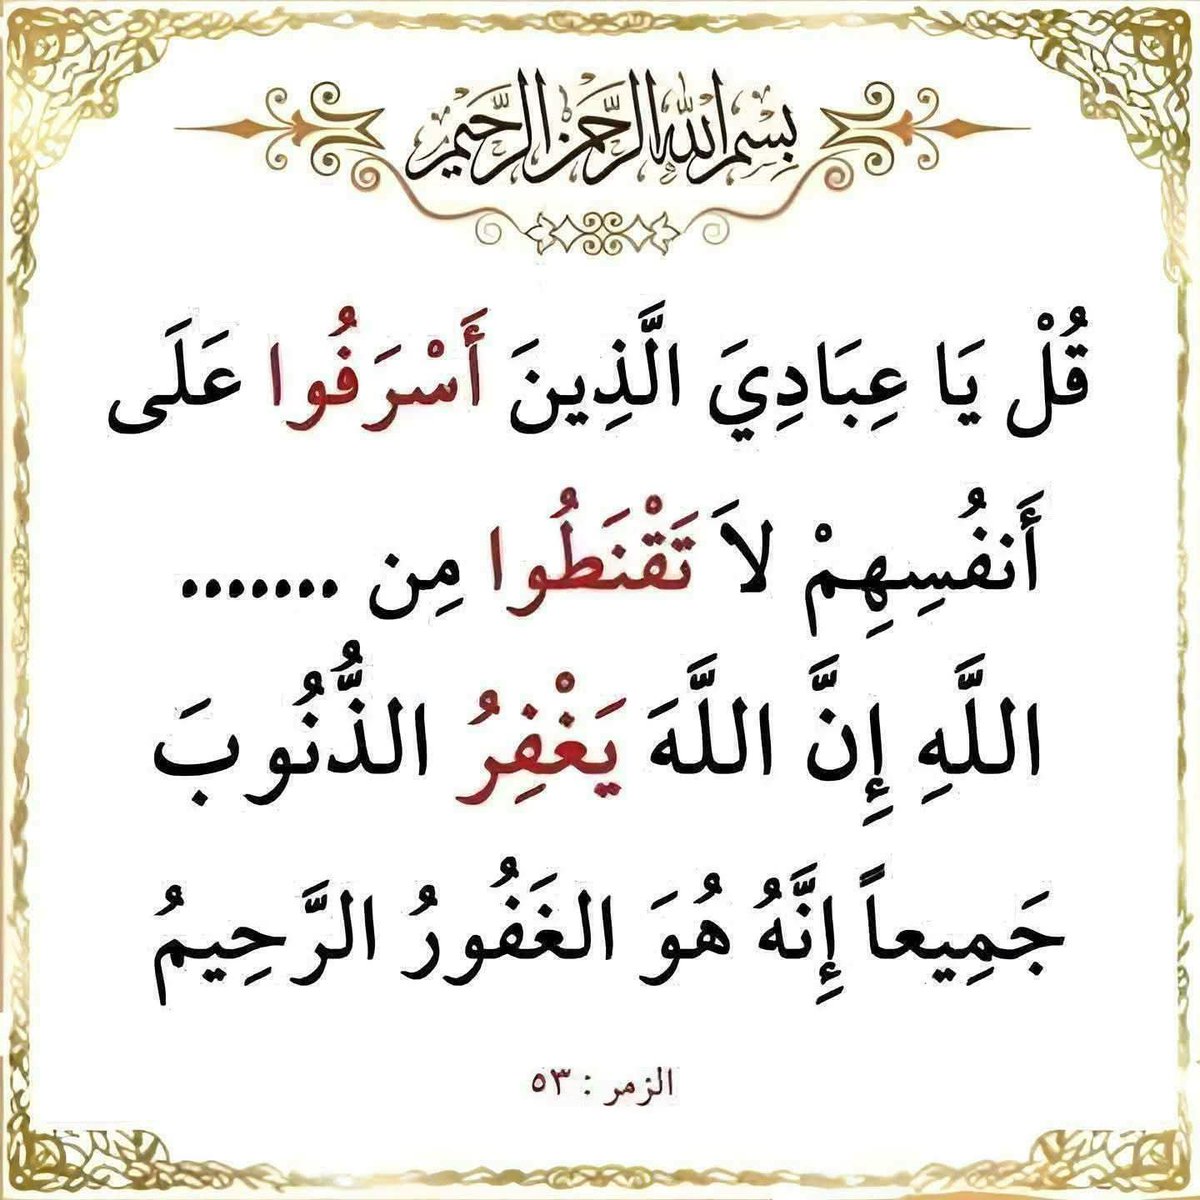 بِسْمِ اللهِ الرَّحْمنِ الرَّحِيمِ
قُلْ يَا عِبَادِيَ الَّذِينَ أَسْرَفُوا عَلَى
أَنفُسِهِمْ لاَ تَقْنَطُوا مِن .......
اللَّهِ إِنَّ اللَّهَ يَغْفِرُ الذُّنُوبَ
جَمِيعاً إِنَّهُ هُوَ الغَفُورُ الرَّحِيمُ
الزمر : ٥٣